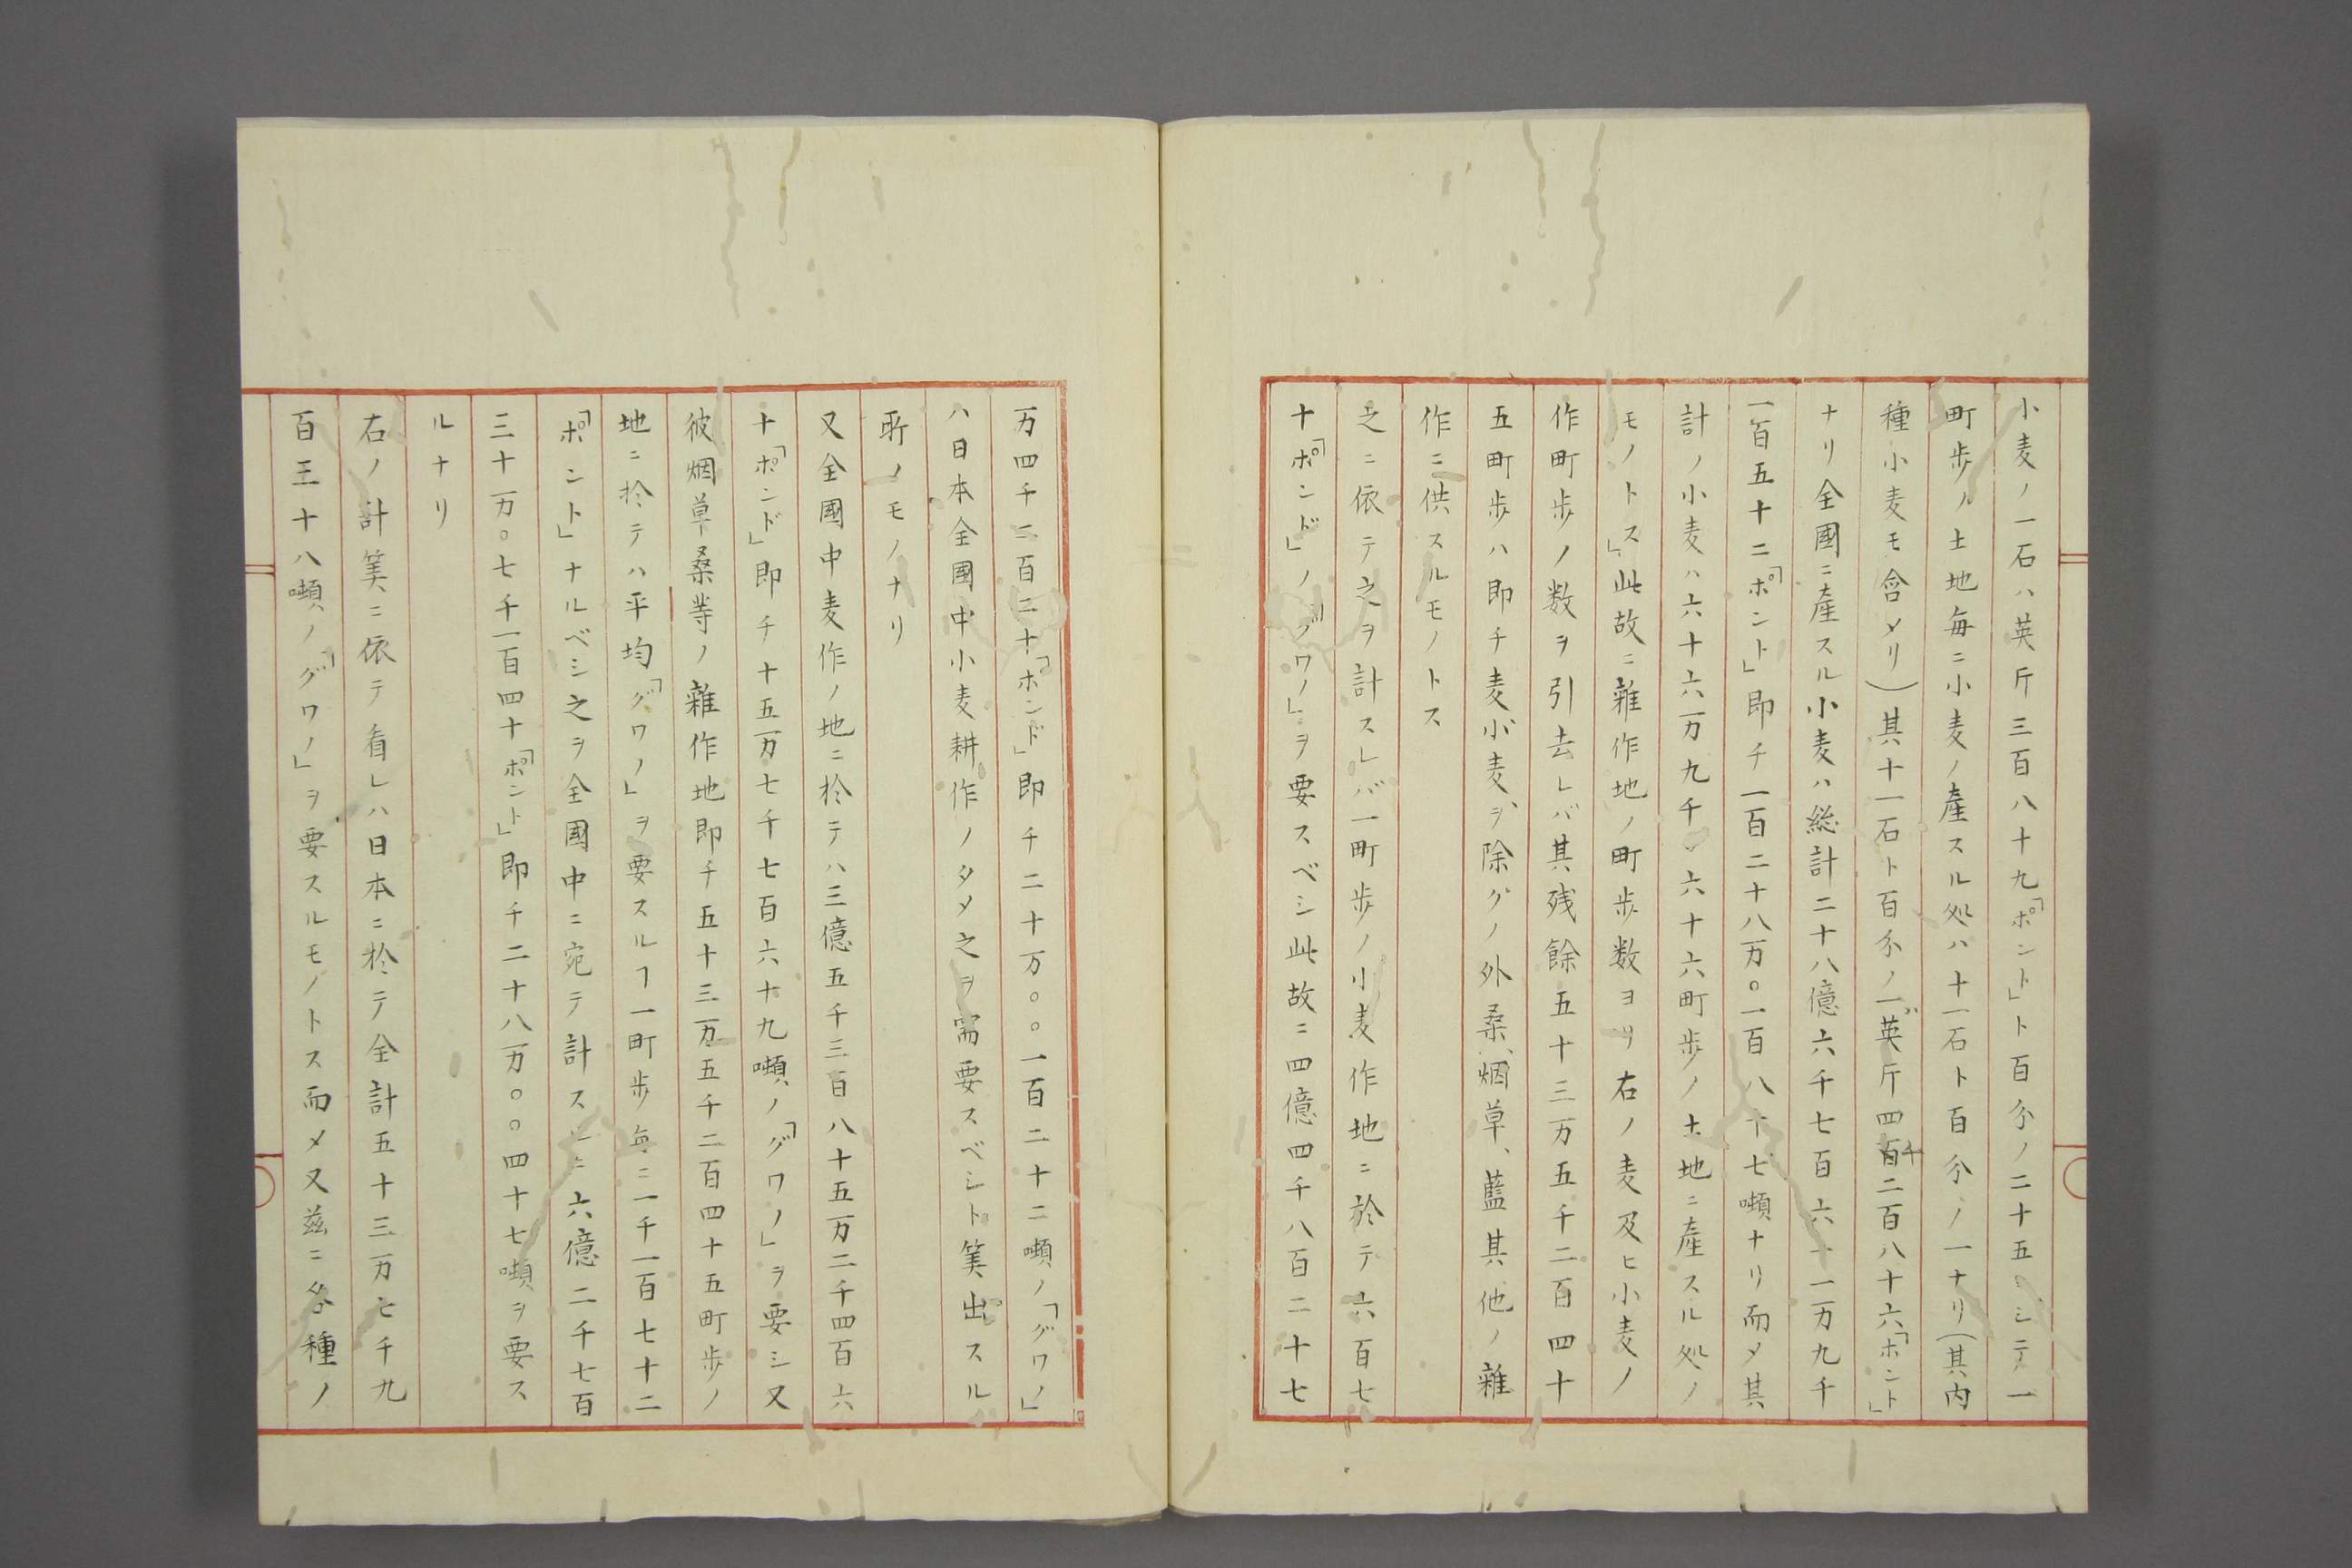 小麦ノ一石ハ英斤三百八十九「ポント」ト百分ノ二十五ニシテ一
町歩ノ土地毎ニ小麦ノ産スル処ハ十一石ト百分ノ一ナリ(其内
種小麦モ含メリ)其十一石ト百分ノ一ハ英斤四千二百八十六「ホント」
ナリ全國ニ産スル小麦ハ総計二十八億六千七百六十一万九千
一百五十二「ポント」即チ一百二十八万〇一百八十七噸ナリ而メ其
計ノ小麦ハ六十六万九千〇六十六町歩ノ土地ニ産スル処ノ
モノトス」此故ニ雑作地ノ町歩数ヨリ右ノ麦及ヒ小麦ノ
作町歩ノ数ヲ引去レバ其残餘五十三万五千二百四十
五町歩ハ即チ麦、小麦、ヲ除クノ外桑、烟草、藍其他ノ雑
作ニ供スルモノトス
之ニ依テ之ヲ計スレバ一町歩ノ小麦作地ニ於テ六百七
十「ポンド」ノ「グワノ」ヲ要スベシ此故ニ四億四千八百二十七
万四千二百二十「ホンド」即チ二十万〇〇一百二十二噸ノ「グワノ」
ハ日本全國中小麦耕作ノタメ之ヲ需要スベシト筭出スル
所ノモノナリ
又全國中麦作ノ地ニ於テハ三億五千三百八十五万二千四百六
十「ポンド」即チ十五万七千七百六十九噸ノ「グワノ」ヲ要シ又
彼烟草桑等ノ雑作地即チ五十三万五千二百四十五町歩ノ
地ニ於テハ平均「グワノ」ヲ要スルヿ一町歩毎ニ一千一百七十二
「ポント」ナルベシ之ヲ全國中ニ宛テ計スルニ六億二千七百
三十万〇七千一百四十「ポント」即チ二十八万〇〇四十七噸ヲ要ス
ルナリ
右ノ計筭ニ依テ看レハ日本ニ於テ全計五十三万七千九
百三十八噸ノ「グワノ」ヲ要スルモノトス而メ又茲ニ各種ノ